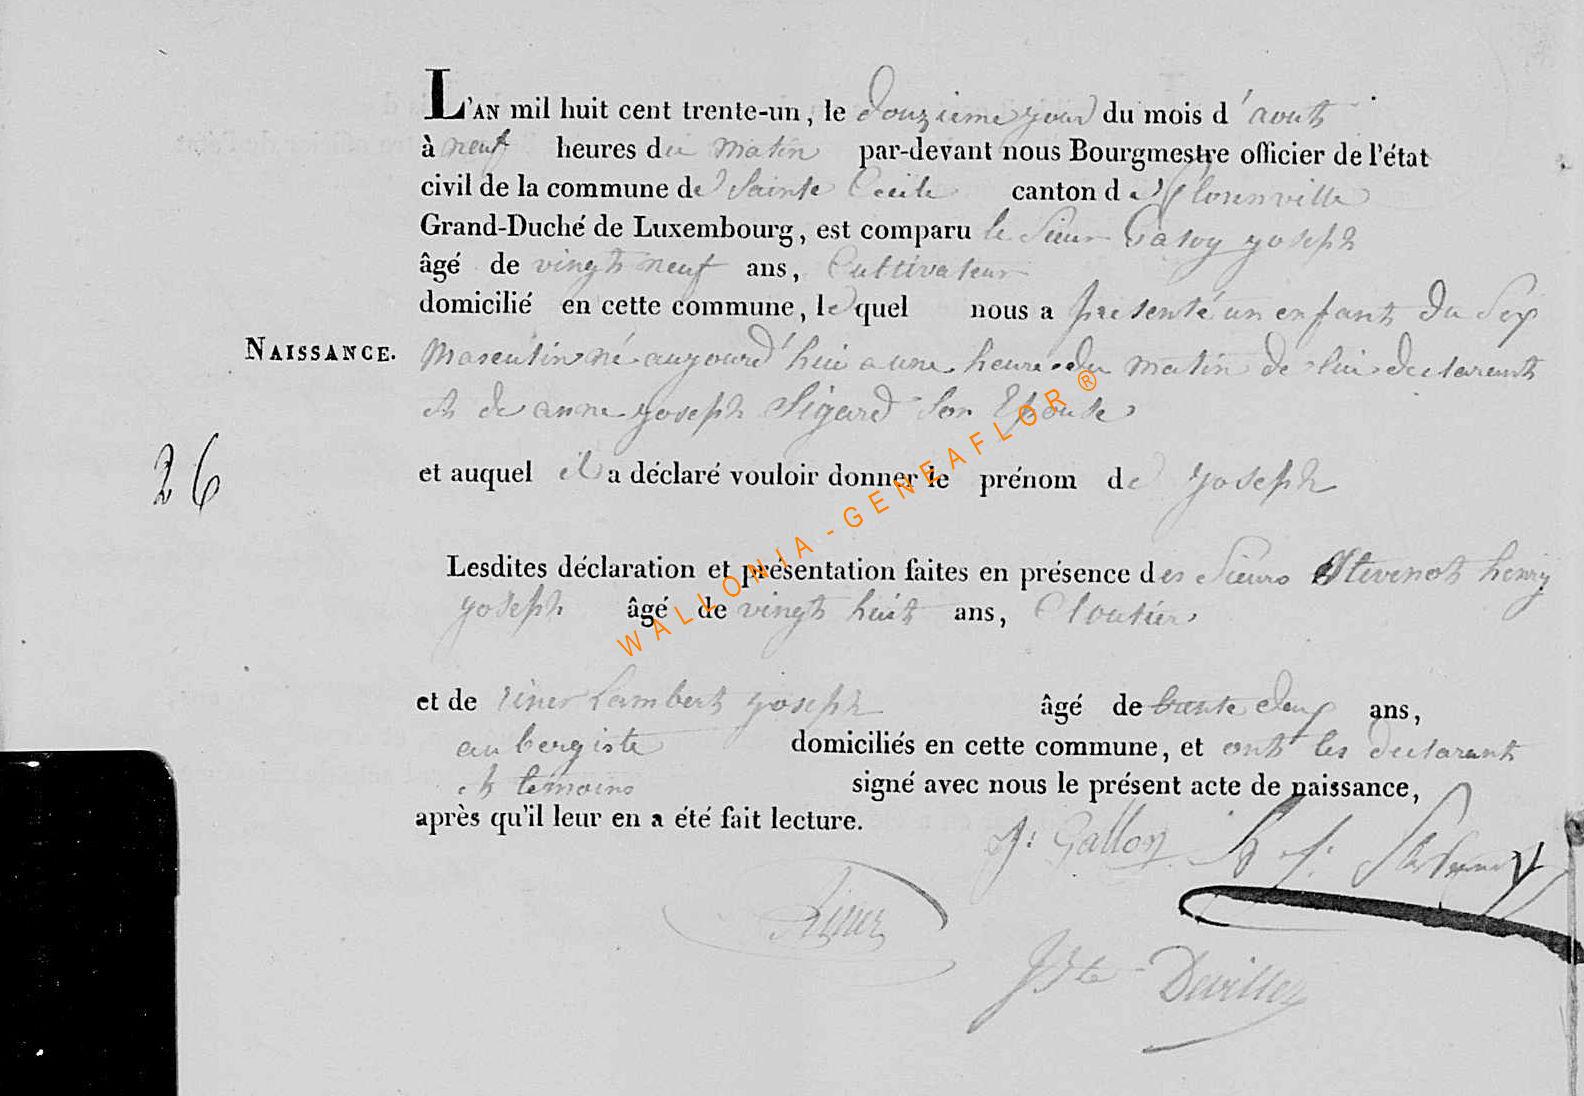 L'AN mil huit cent trente-un, le douzieme jour du mois d'aout
à neuf heures du matin par-devant nous Bourgmestre officier de l'état
civil de la commune de Sainte Cecile canton de florenville
Grand-Duché de Luxembourg, est comparu le Sieur joseph
âgé de vingt neuf ans, Cultivateur
domicilié en cette commune, lequel nous a presenté un enfant du Sex
NAISSANCE. Masculin né aujourd'hui a une heure du matin de lui declarant
et de anne joseph Sigard son Epouse
26
et auquel il a déclaré vouloir donner le prénom de joseph
Lesdites déclaration et présentation faites en présence des Sieurs Stevenot henry
joseph âgé de vingt huit ans, Cloutier
et de Lambert joseph âgé de trente deux ans,
aubergiste domiciliés en cette commune, et ont les declarant
et temoins signé avec nous le présent acte de naissance,
après qu'il leur en a été fait lecture.
J: h J:
Jste Devillez
WALLONIA-GENEAFLOR ®